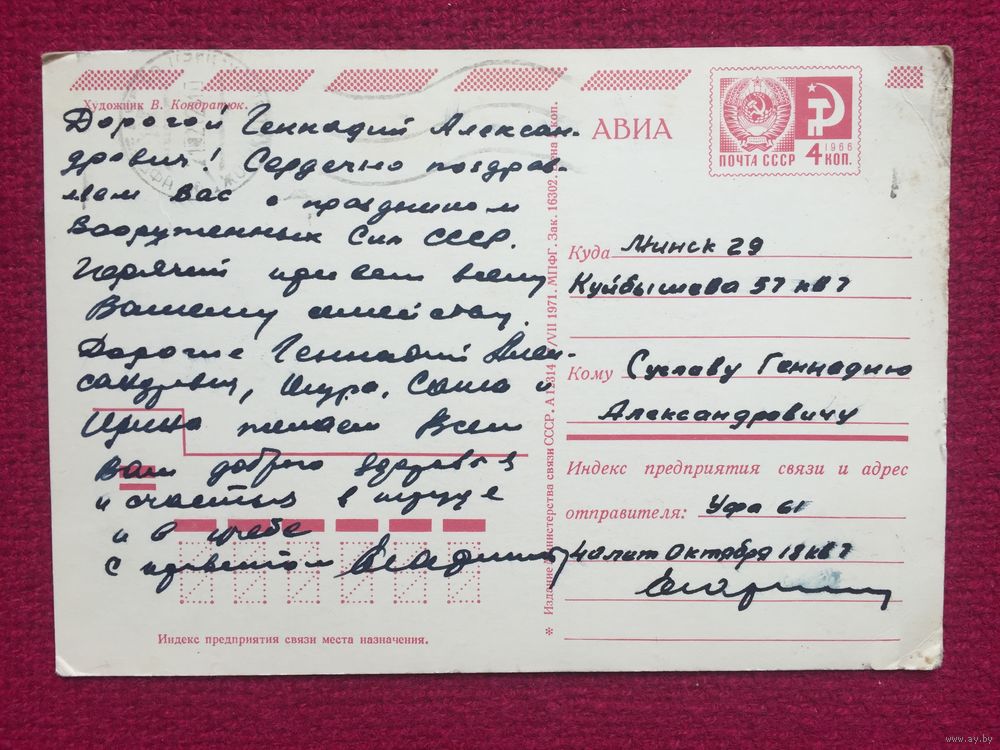 Художник В. Кондратюк.
Дорогой Геннадий Алексан-
дрович! Сердечно поздрав-
ляем Вас с праздником
Вооруженных Сил СССР.
Горячий привет всему
Вашему семейству.
Дорогие Геннадий Алек-
сандрович, Шура, Саша и
Ирина желаем Всем
Вам доброго здоровья
и счастья в труде
и в учебе
С приветом
Индекс предприятия связи места назначения.
Издание Министерства связи СССР. А 12314 /VII 1971. МПФГ. Зак. 16302. Цена коп.
АВИА
ПОЧТА СССР
1966
4 КОП.
Куда Минск 29
Куйбышева 57 кв 7
Кому Суглаву Геннадию
Александровичу
Индекс предприятия связи и адрес
отправителя: Уфа 61
40 лет Октября 18 кв 7
www.ay.by